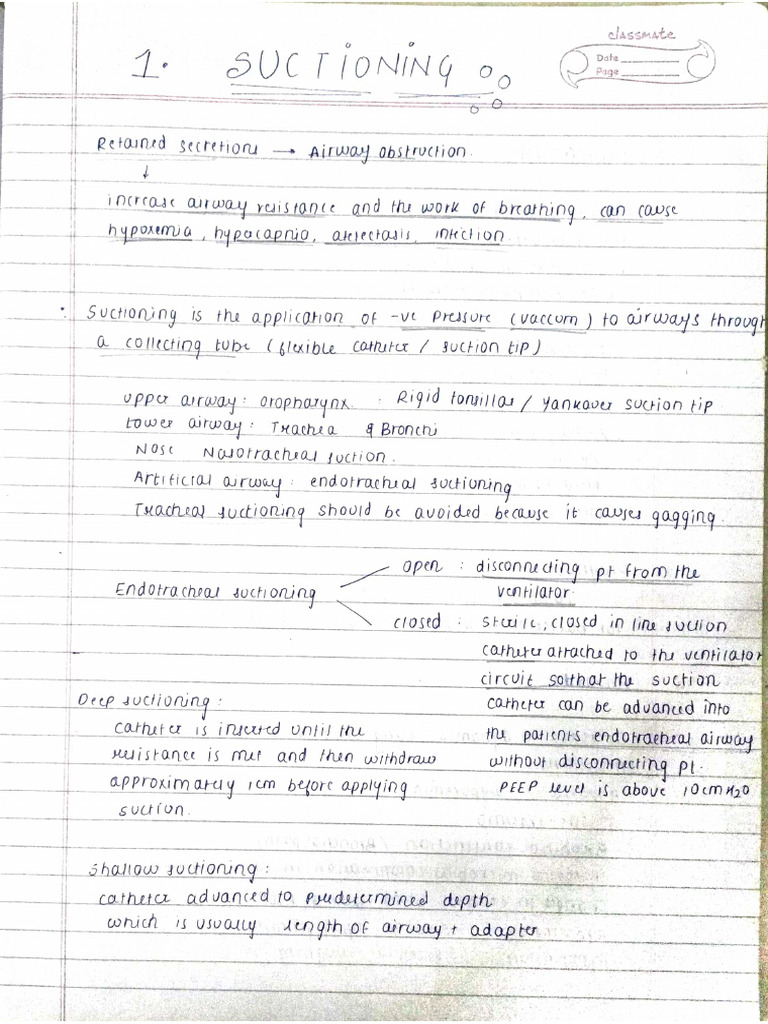 classmate
Date
Page
1. SUCTIONING
Retained secretions → Airway obstruction.
↓
increase airway resistance and the work of breathing, can cause
hypoxemia, hypocapnia, atelectasis, infection.
• Suctioning is the application of -ve pressure (vaccum) to airways through
a collecting tube (flexible catheter / suction tip)
upper airway: oropharynx : Rigid tonsillar / yankauer suction tip
Lower airway: Trachea & Bronchi
Nose Nasotracheal suction.
Artificial airway: endotracheal suctioning
Tracheal suctioning should be avoided because it causes gagging.
Endotracheal suctioning
open : disconnecting pt from the
ventilator.
closed : sterile, closed, in line suction
catheter attached to the ventilator
circuit so that the suction
catheter can be advanced into
the patients endotracheal airway
without disconnecting pt.
PEEP level is above 10cmH2O
Deep suctioning:
catheter is inserted until the
resistance is met and then withdraw
approximately 1cm before applying
suction.
Shallow suctioning:
catheter advanced to predetermined depth
which is usually length of airway + adapter